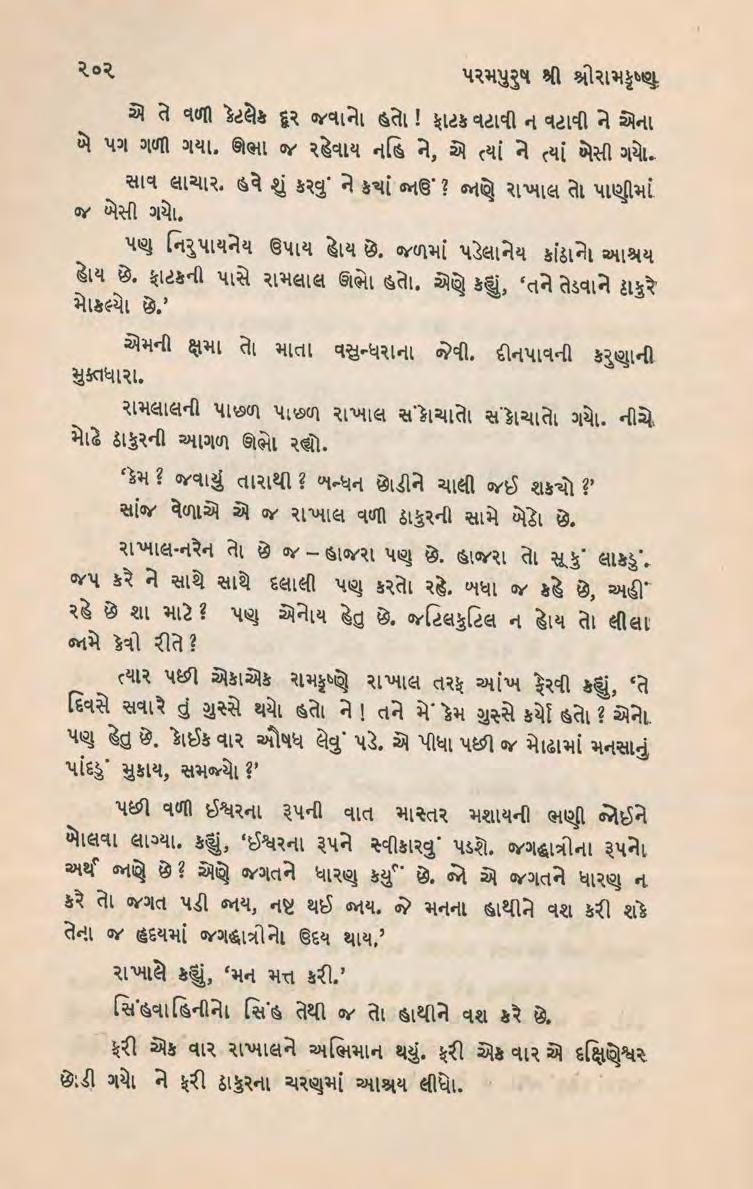 ૨૦૨
પરમપુરુષ શ્રી શ્રીરામકૃષ્ણ
એ તે વળી કેટલેક દૂર જવાનો હતો! ફાટક વટાવી ન વટાવી ને એના
બે પગ ગળી ગયા. ઊભા જ રહેવાય નહિ ને, એ ત્યાં ને ત્યાં બેસી ગયો.
સાવ લાચાર. હવે શું કરવું ને કયાં જાઉં? જાણે રાખાલ તો પાણીમાં
જ બેસી ગયો.
પણ નિરુપાયનેય ઉપાય હોય છે. જળમાં પડેલાનેય કાંઠાનો આશ્રય
હોય છે. ફાટકની પાસે રામલાલ ઊભો હતો. એણે કહ્યું, ‘તને તેડવાને ઠાકુરે
મોકલ્યો છે.’
એમની ક્ષમા તો માતા વસુન્ધરાના જેવી. દીનપાવની કરુણાની
મુક્તધારા.
રામલાલની પાછળ પાછળ રાખાલ સંકોચાતો સંકોચાતો ગયો. નીચે
મોઢે ઠાકુરની આગળ ઊભો રહ્યો.
‘કેમ? જવાયું તારાથી? બન્ધન છોડીને ચાલી જઈ શકયો?’
સાંજ વેળાએ એ જ રાખાલ વળી ઠાકુરની સામે બેઠો છે.
રાખાલ-નરેન તો છે જ – હાજરા પણ છે. હાજરા તો સૂકું લાકડું.
જપ કરે ને સાથે સાથે દલાલી પણ કરતો રહે. બધા જ કહે છે, અહીં
રહે છે શા માટે? પણ એનોય હેતુ છે. જટિલકુટિલ ન હોય તો લીલા
જામે કેવી રીતે?
ત્યાર પછી એકાએક રામકૃષ્ણે રાખાલ તરફ આંખ ફેરવી કહ્યું, ‘તે
દિવસે સવારે તું ગુસ્સે થયો હતો ને! તને મેં કેમ ગુસ્સે કર્યો હતો? એનો
પણ હેતુ છે. કોઈક વાર ઔષધ લેવું પડે. એ પીધા પછી જ મોઢામાં મનસાનું
પાંદડું મુકાય, સમજ્યો?’
પછી વળી ઈશ્વરના રૂપની વાત માસ્તર મશાયની ભણી જોઈને
બોલવા લાગ્યા. કહ્યું, ‘ઈશ્વરના રૂપને સ્વીકારવું પડશે. જગદ્ધાત્રીના રૂપનો
અર્થ જાણે છે? એણે જગતને ધારણ કર્યું છે. જો એ જગતને ધારણ ન
કરે તો જગત પડી જાય, નષ્ટ થઈ જાય. જે મનના હાથીને વશ કરી શકે
તેના જ હૃદયમાં જગદ્ધાત્રીનો ઉદય થાય.’
રાખાલે કહ્યું, ‘મન મત્ત કરી.’
સિંહવાહિનીનો સિંહ તેથી જ તો હાથીને વશ કરે છે.
ફરી એક વાર રાખાલને અભિમાન થયું. ફરી એક વાર એ દક્ષિણેશ્વર
છોડી ગયો ને ફરી ઠાકુરના ચરણમાં આશ્રય લીધો.